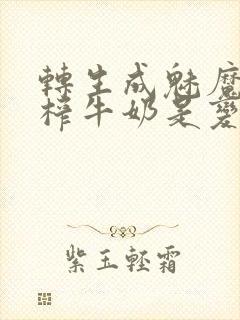 轉生成魅魔
榨牛奶是變
紫玉輕霜